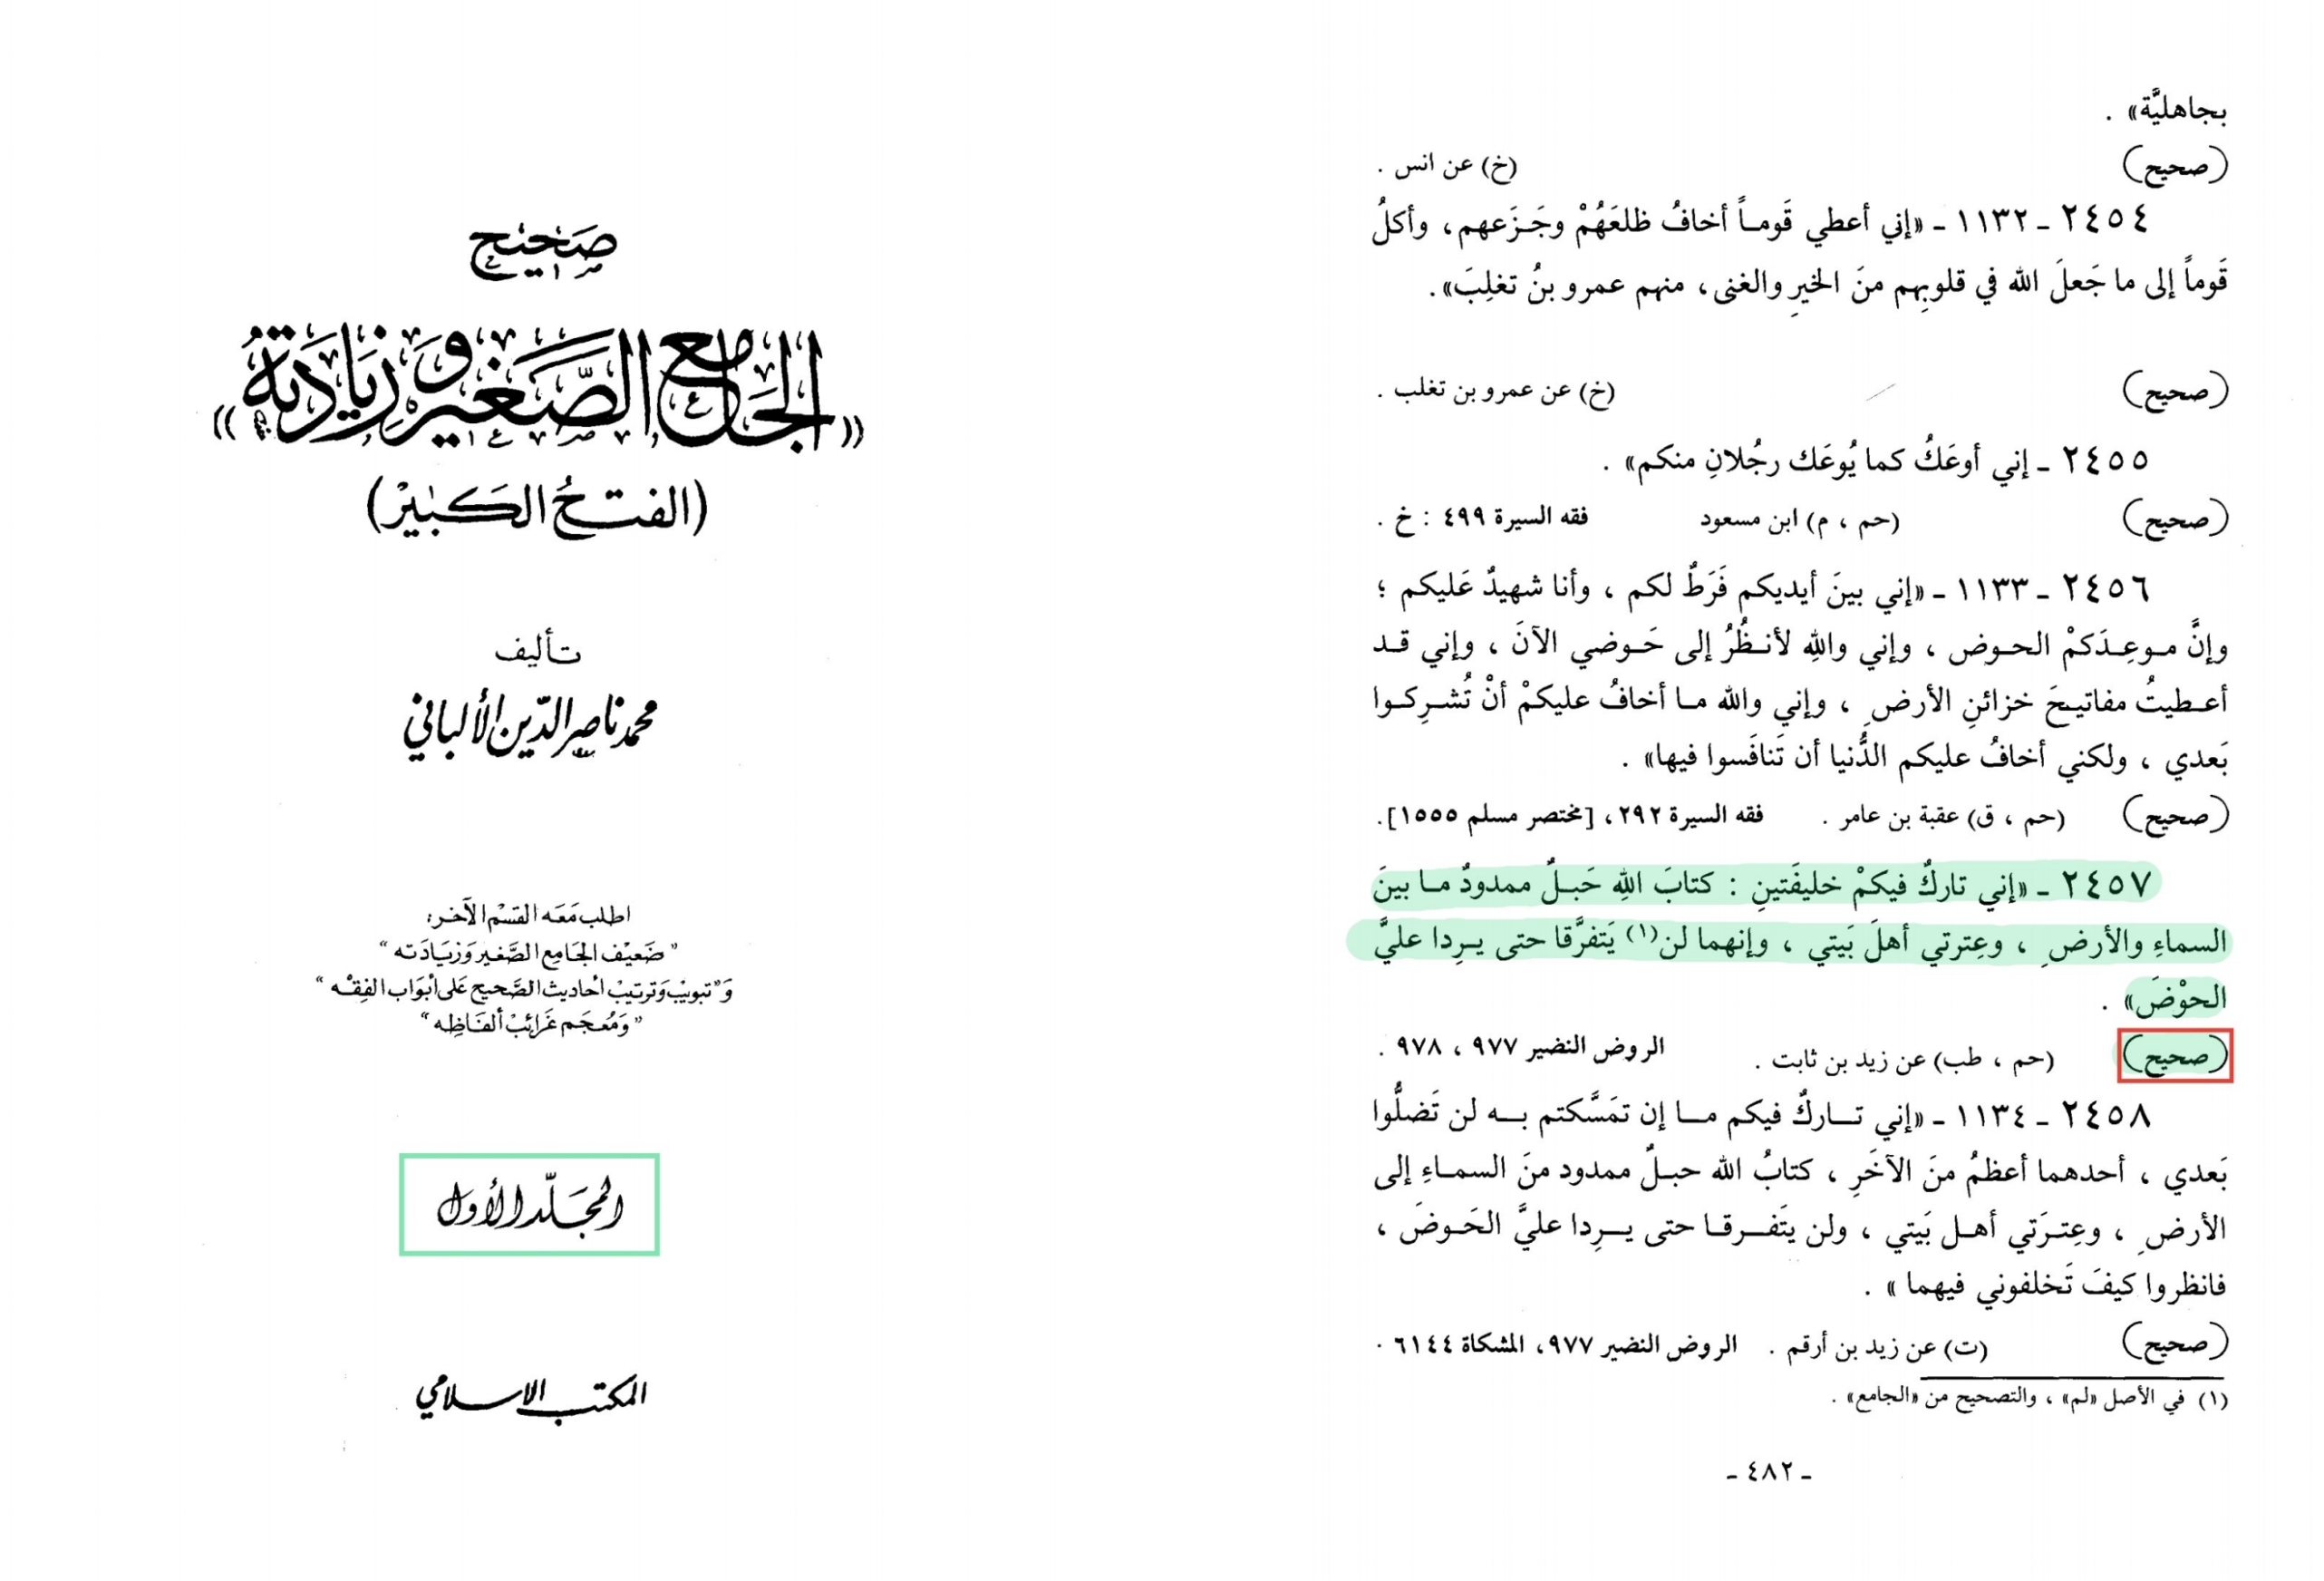 صحيح
«الجامع الصغير وزيادته»
(الفتح الكبير)
تأليف
محمد ناصر الدين الألباني
اطلب معه القسم الآخر:
"ضعيف الجامع الصغير وزيادته"
و"تبويب وترتيب أحاديث الصحيح على أبواب الفقه"
"ومعجم غرائب ألفاظه"
المجلد الأول
المكتب الاسلامي
بجاهليَّة» .
(صحيح) (خ) عن انس .
٢٤٥٤ ـ ١١٣٢ ـ «إني أعطي قَوماً أخافُ ظلعَهُمْ وجَزَعهم، وأكلُ
قَوماً إلى ما جَعلَ الله في قلوبِهم منَ الخيرِ والغنى، منهم عمرو بنُ تغلِبَ».
(صحيح) (خ) عن عمرو بن تغلب .
٢٤٥٥ ـ إني أوعَكُ كما يُوعَك رجُلانِ منكم» .
(صحيح) (حم ، م) ابن مسعود فقه السيرة ٤٩٩ : خ .
٢٤٥٦ ـ ١١٣٣ ـ «إني بينَ أيديكم فَرَطٌ لكم ، وأنا شهيدٌ عَليكم ؛
وإنَّ موعِدَكمْ الحوض ، وإني واللهِ لأنظُرُ إلى حَوضي الآنَ ، وإني قد
أعطيتُ مفاتيحَ خزائنِ الأرضِ ، وإني والله ما أخافُ عليكمْ أنْ تُشرِكوا
بَعدي ، ولكني أخافُ عليكم الدُّنيا أن تَنافَسوا فيها» .
(صحيح) (حم ، ق) عقبة بن عامر . فقه السيرة ٢٩٢، [مختصر مسلم ١٥٥٥].
٢٤٥٧ ـ «إني تاركٌ فيكمْ خليفَتينِ : كتابَ اللهِ حَبلٌ ممدودٌ ما بينَ
السماءِ والأرضِ ، وعِترتي أهلَ بَيتي ، وإنهما لن(١) يَتفرَّقا حتى يرِدا عليَّ
الحوْضَ» .
(صحيح) (حم ، طب) عن زيد بن ثابت . الروض النضير ٩٧٧ ، ٩٧٨ .
٢٤٥٨ ـ ١١٣٤ ـ «إني تاركٌ فيكم ما إن تمَسَّكتم به لن تَضلُّوا
بَعدي ، أحدهما أعظمُ منَ الآخَرِ ، كتابُ الله حبلٌ ممدود منَ السماءِ إلى
الأرضِ ، وعِترَتي أهل بَيتي ، ولن يتَفرقا حتى يرِدا عليَّ الحَوضَ ،
فانظروا كيفَ تَخلفوني فيهما » .
(صحيح) (ت) عن زيد بن أرقم . الروض النضير ٩٧٧، المشكاة ٦١٤٤ .
(١) في الأصل «لم» ، والتصحيح من «الجامع» .
ـ ٤٨٢ ـ